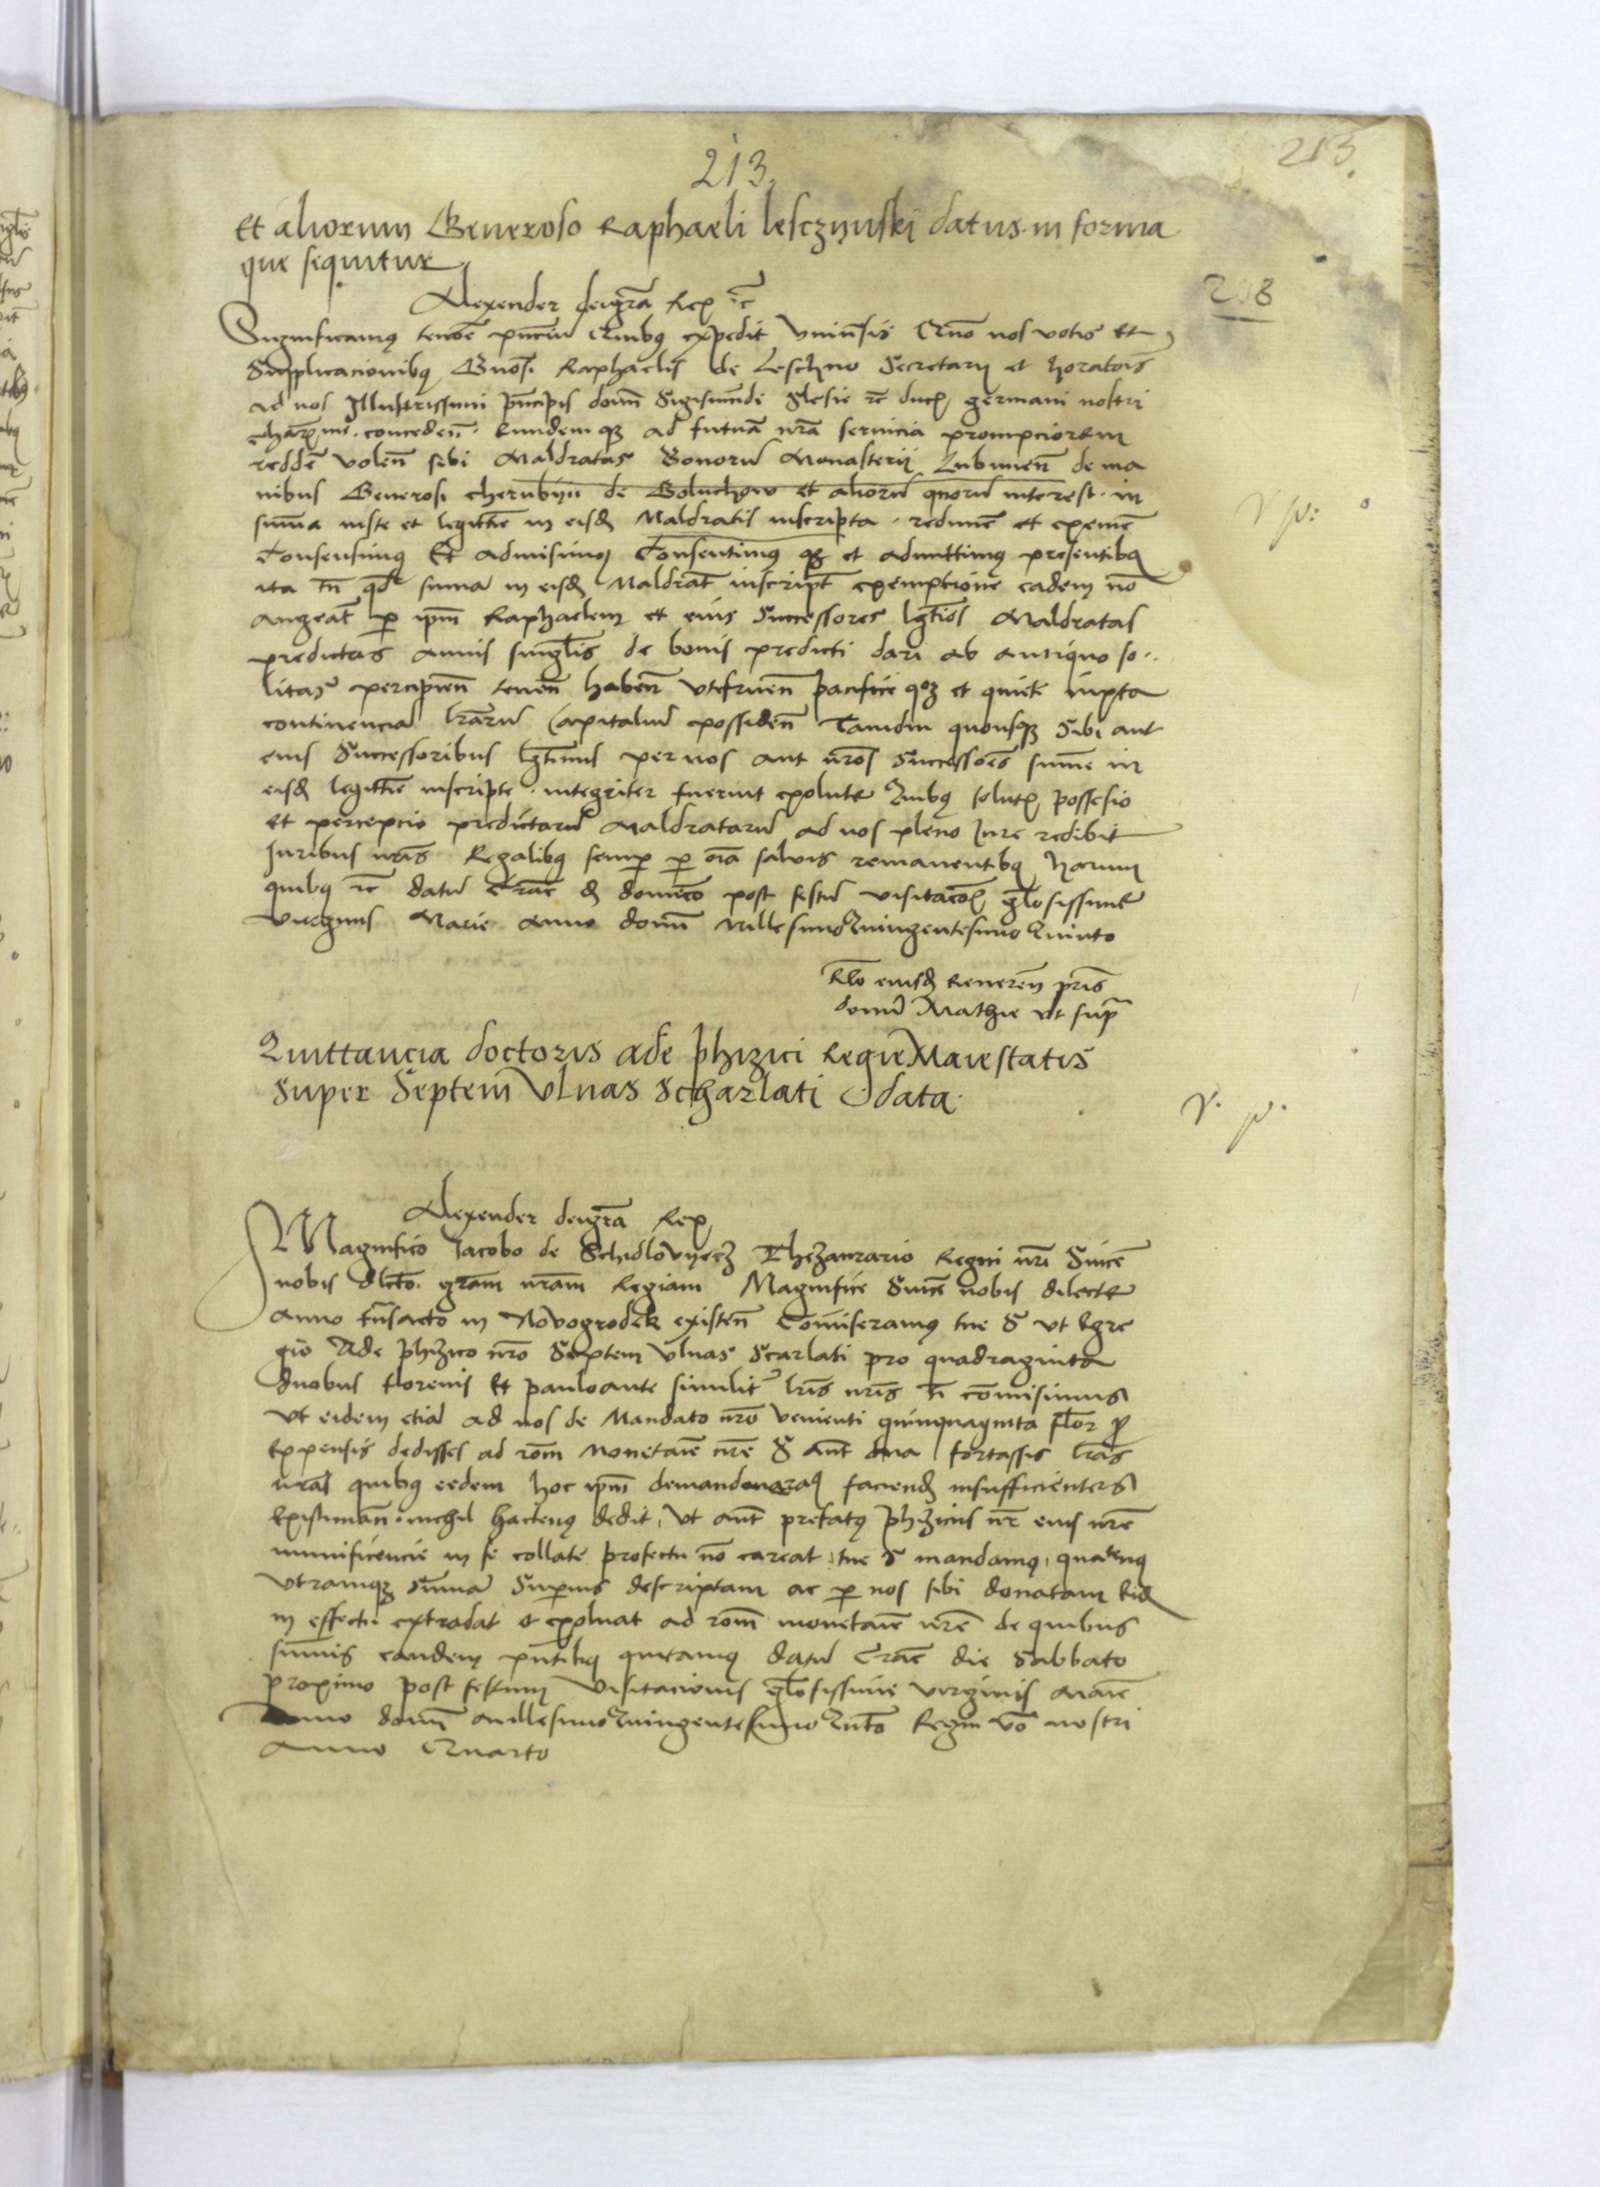 213.
213.
Et aliorum Generoso Raphaeli lesczynski datus in forma
que sequitur
208
Alexender dei gra Rex rc
Significamus tenore pncium Quibus expedit vniusis Quo nos votis et
Supplicacionibus Gnosi Raphaelis de Leschno Secretarij et horatoris
ad nos Illustrissimi principis domni Sigismundi Slesie rc ducis germani nostri
conceden eundem qz ad futura nra seruicia prompciorem
redde volen sibi Maldratas bonoru Monasterij Lubinen de ma
nibus Generosi cherubyn de Goluchow et alioru quoru interest in
suma iuste et legittime in eisd Maldratis inscripta redime et exeme
Consensimus Et admisimus Consentimus qz et admittimus presentibus
ita tn qd suma in eisd Maldrat inscript exempcione eadem no
augeat per ipm Raphaelem et eius Successores lgtios Maldratas
predictas annis singlis de bonis predicti dari ab antiquo so..
litas percipien tenen haben vtifruen pacifice qz et quiete iuxta
continencia lraru Capitaliu possiden Tamdiu quousqz Sibi aut
eius Successoribus lgtimis per nos aut nros Successores sume in
eisd legittime inscripte integriter fuerint exolute Quibus solutis possesio
et percepcio predictaru Maldrataru ad nos pleno Jure redibit
Juribus nris Regalibus semp per oia saluis remanentibus harum
quibus rc datu Crac d domico post festu visitacois glosissime
virginis Marie Anno domi Millesimo Quingentesimo Quinto
Rlo eiusd Reueren pris
domi Mathie vt supra
v p:
Quittancia doctoris Ade phizici Regie Maiestatis
Super Septem vlnas Scharlati data
v. p.
Alexender dei gra Rex
Magnifico Jacobo de Schidlovyecz Thezaurario Regni nri Since
nobis dlcto gram nram Regiam Magnifice Since nobis dilecte
Anno transacto in Novogrodek existen Comiseramus tue S vt Egre
gio Ade phizico nro Septem vlnas Scarlati pro quadraginta
duobus florenis Et pauloante similiter lris nris tn comisimus
vt eidem etia ad nos de Mandato nro venienti quinquaginta flor pro
Expensis dedisses ad rom Monetarie nre S Aut dua fortassis lras
nras quibus eedem hoc ipm faciend insufficienters
Existiman nichil hactenus dedit vt aut prefatus phizicus nr eius nre
munificencie in se collate profectu no careat tue S mandamus quatenus
vtramqz Suma Superius descriptam ac per nos sibi donatam Eid
in effectu extradat et exoluat ad rom monetarie nre de quibus
sumis eandem pntibus quitamus datu Crac die Sabbato
proximo post festum visitacionis glosissime virginis Marie
Anno domi Millesimo Quingentesimo Quto Regni vo nostri
Anno Quarto